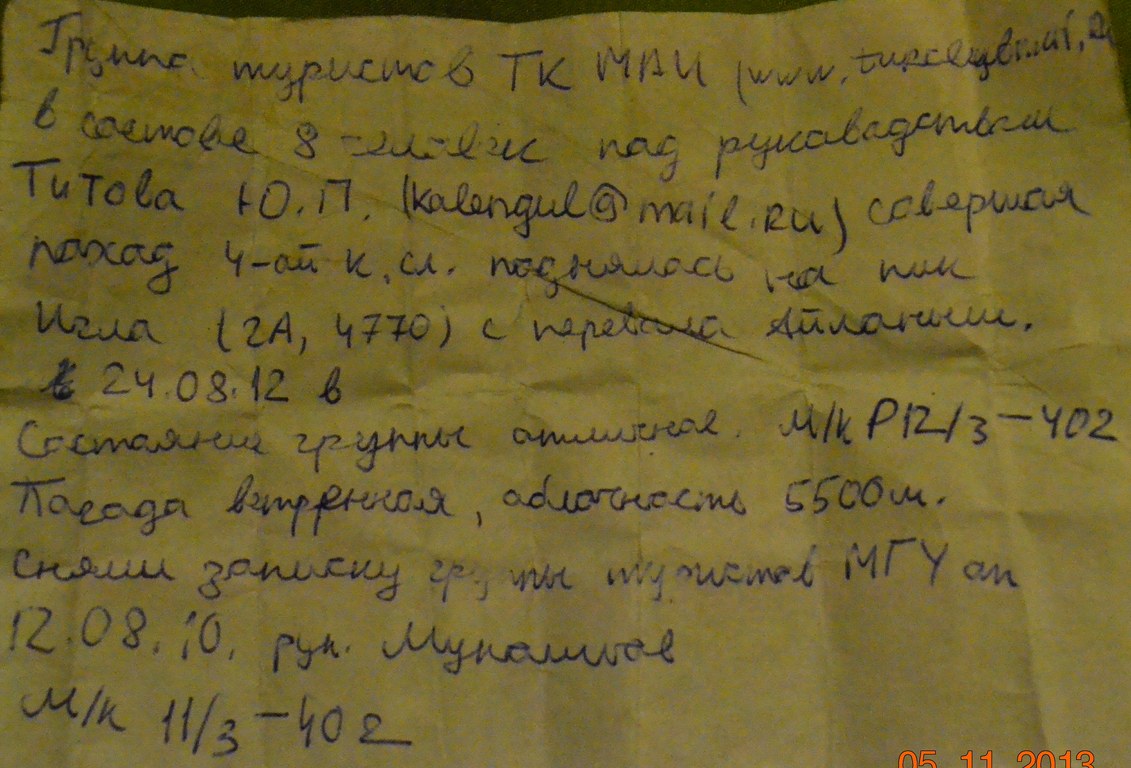 Группа туристов ТК МАИ (www.
в составе 8 человек под руководством
Титова Ю.П. (kalengul@mail.RU) совершая
поход 4-ой к. сл. поднялась на пик
Игла (2А, 4770) с перевала Айланыш.
24.08.12 в
Состояние группы отличное. М/к Р12/3-402
Погода ветренная, облачность 5500м.
Сняли записку группы туристов МГУ от
12.08.10. рук.
М/к 11/3-402
05.11.2013